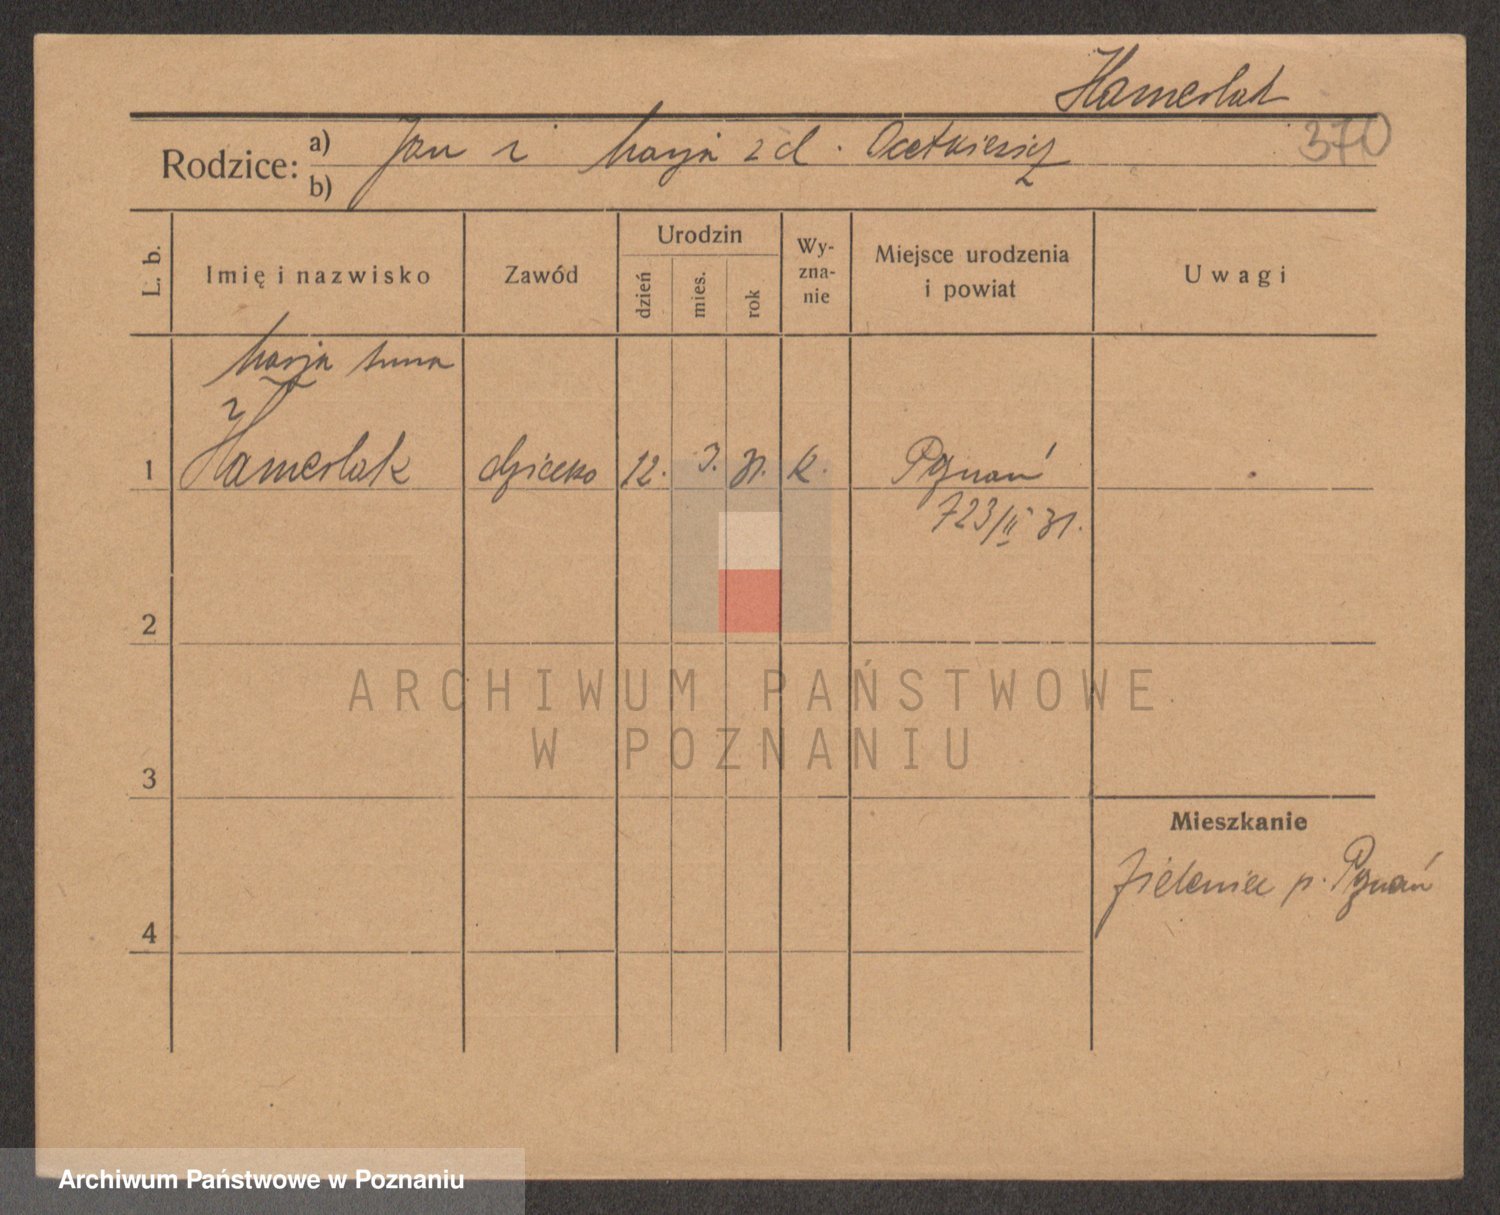 Hamerlak
370
Rodzice: a) Jan i Marja z d.
b)
L. b.
Imię i nazwisko
Zawód
Urodzin
dzień
mies.
rok
Wy-
zna-
nie
Miejsce urodzenia
i powiat
Uwagi
Marja Anna
1 Hamerlak dziecko 12. 3. 31. k. Poznań
723/II 31.
2
3
4
Mieszkanie
Zieleniec p. Poznań
ARCHIWUM PAŃSTWOWE
W POZNANIU
Archiwum Państwowe w Poznaniu